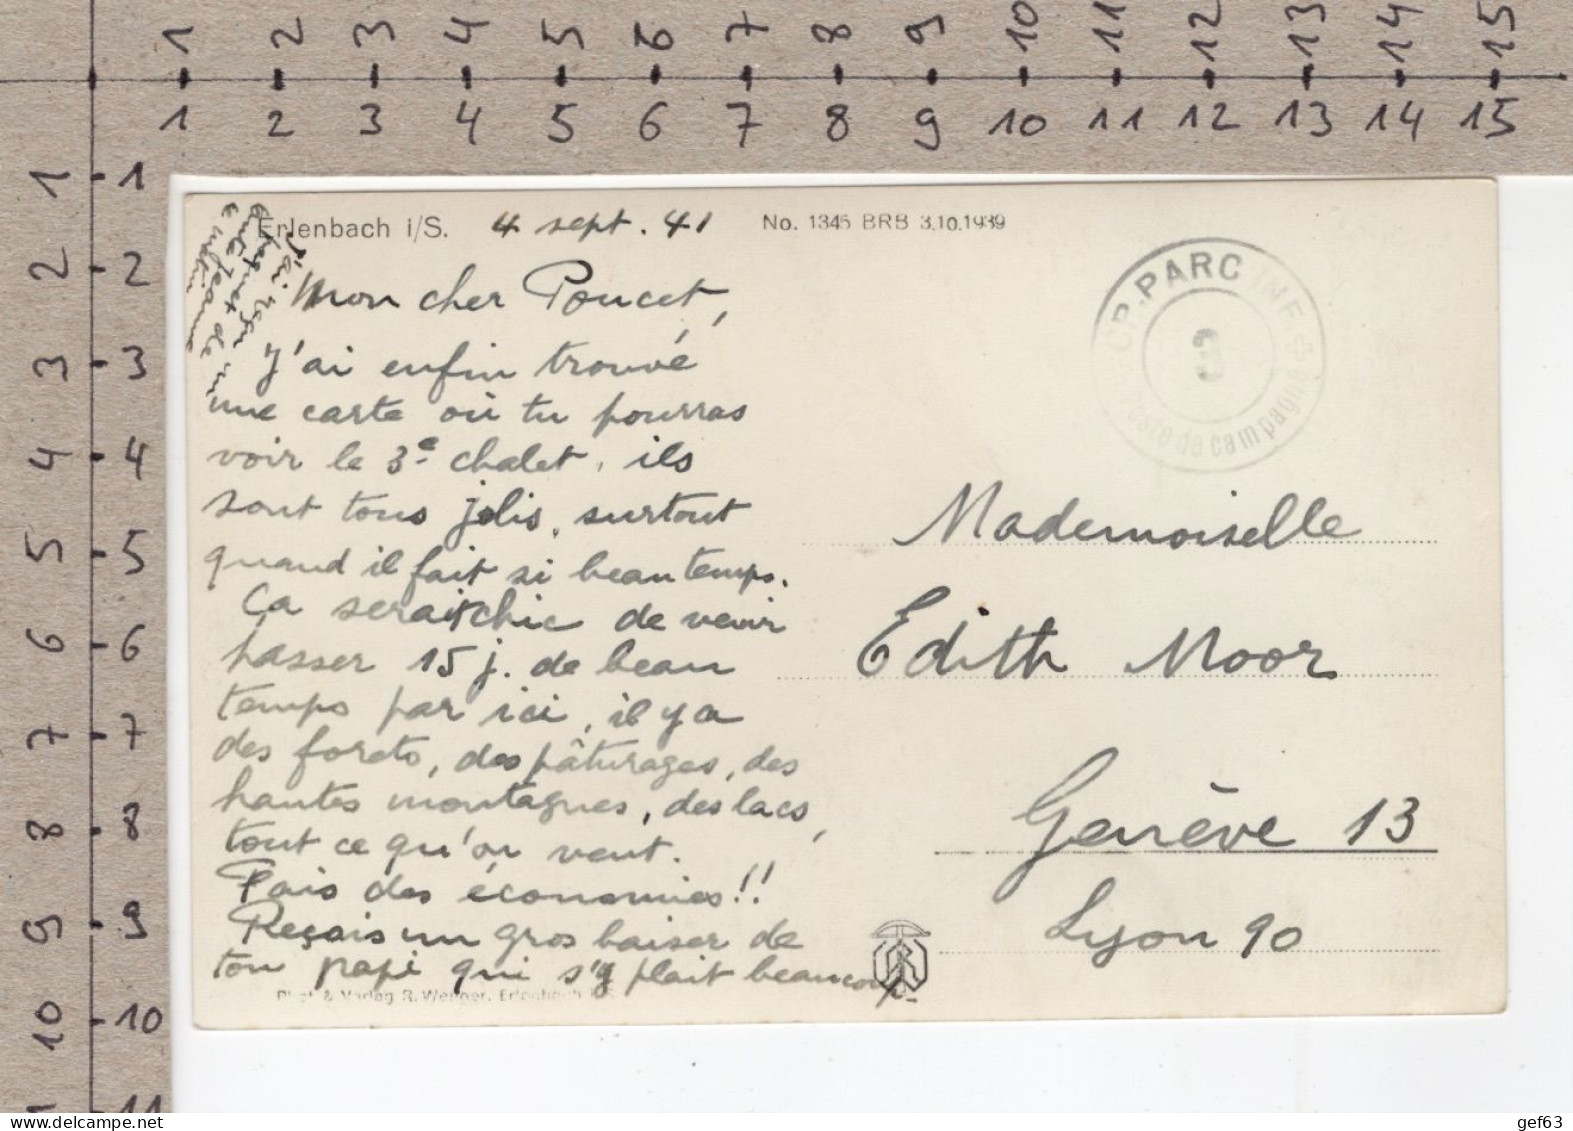 1 2 3 4 5 6 7 8 9 10 11 12 13 14 15
1 2 3 4 5 6 7 8 9 10 11 12 13 14 15
1 1
2 2
3 3
4 4
5 5
6 6
7 7
8 8
9 9
10 10
11
Erlenbach i/S. 4 sept. 41 No. 1345 BRB 3.10.1939
J'ai reçu
de
Jeanne
ce matin
Mon cher Poucet,
J'ai enfin trouvé
une carte où tu pourras
voir le 3e chalet, ils
sont tous jolis, surtout
quand il fait si beau temps.
Ça serait chic de venir
passer 15 j. de beau
temps par ici, il y a
des forets, des pâturages, des
hautes montagnes, des lacs,
tout ce qu'on veut.
Fais des économies!!
Reçois un gros baiser de
ton papi qui s'y plait beaucoup.
Phot. & Verlag R. Wenger, Erlenbach i/S.
CP. PARC INF +
3
Poste de campagne
Mademoiselle
Edith Moor
Genève 13
Lyon 90
gef63